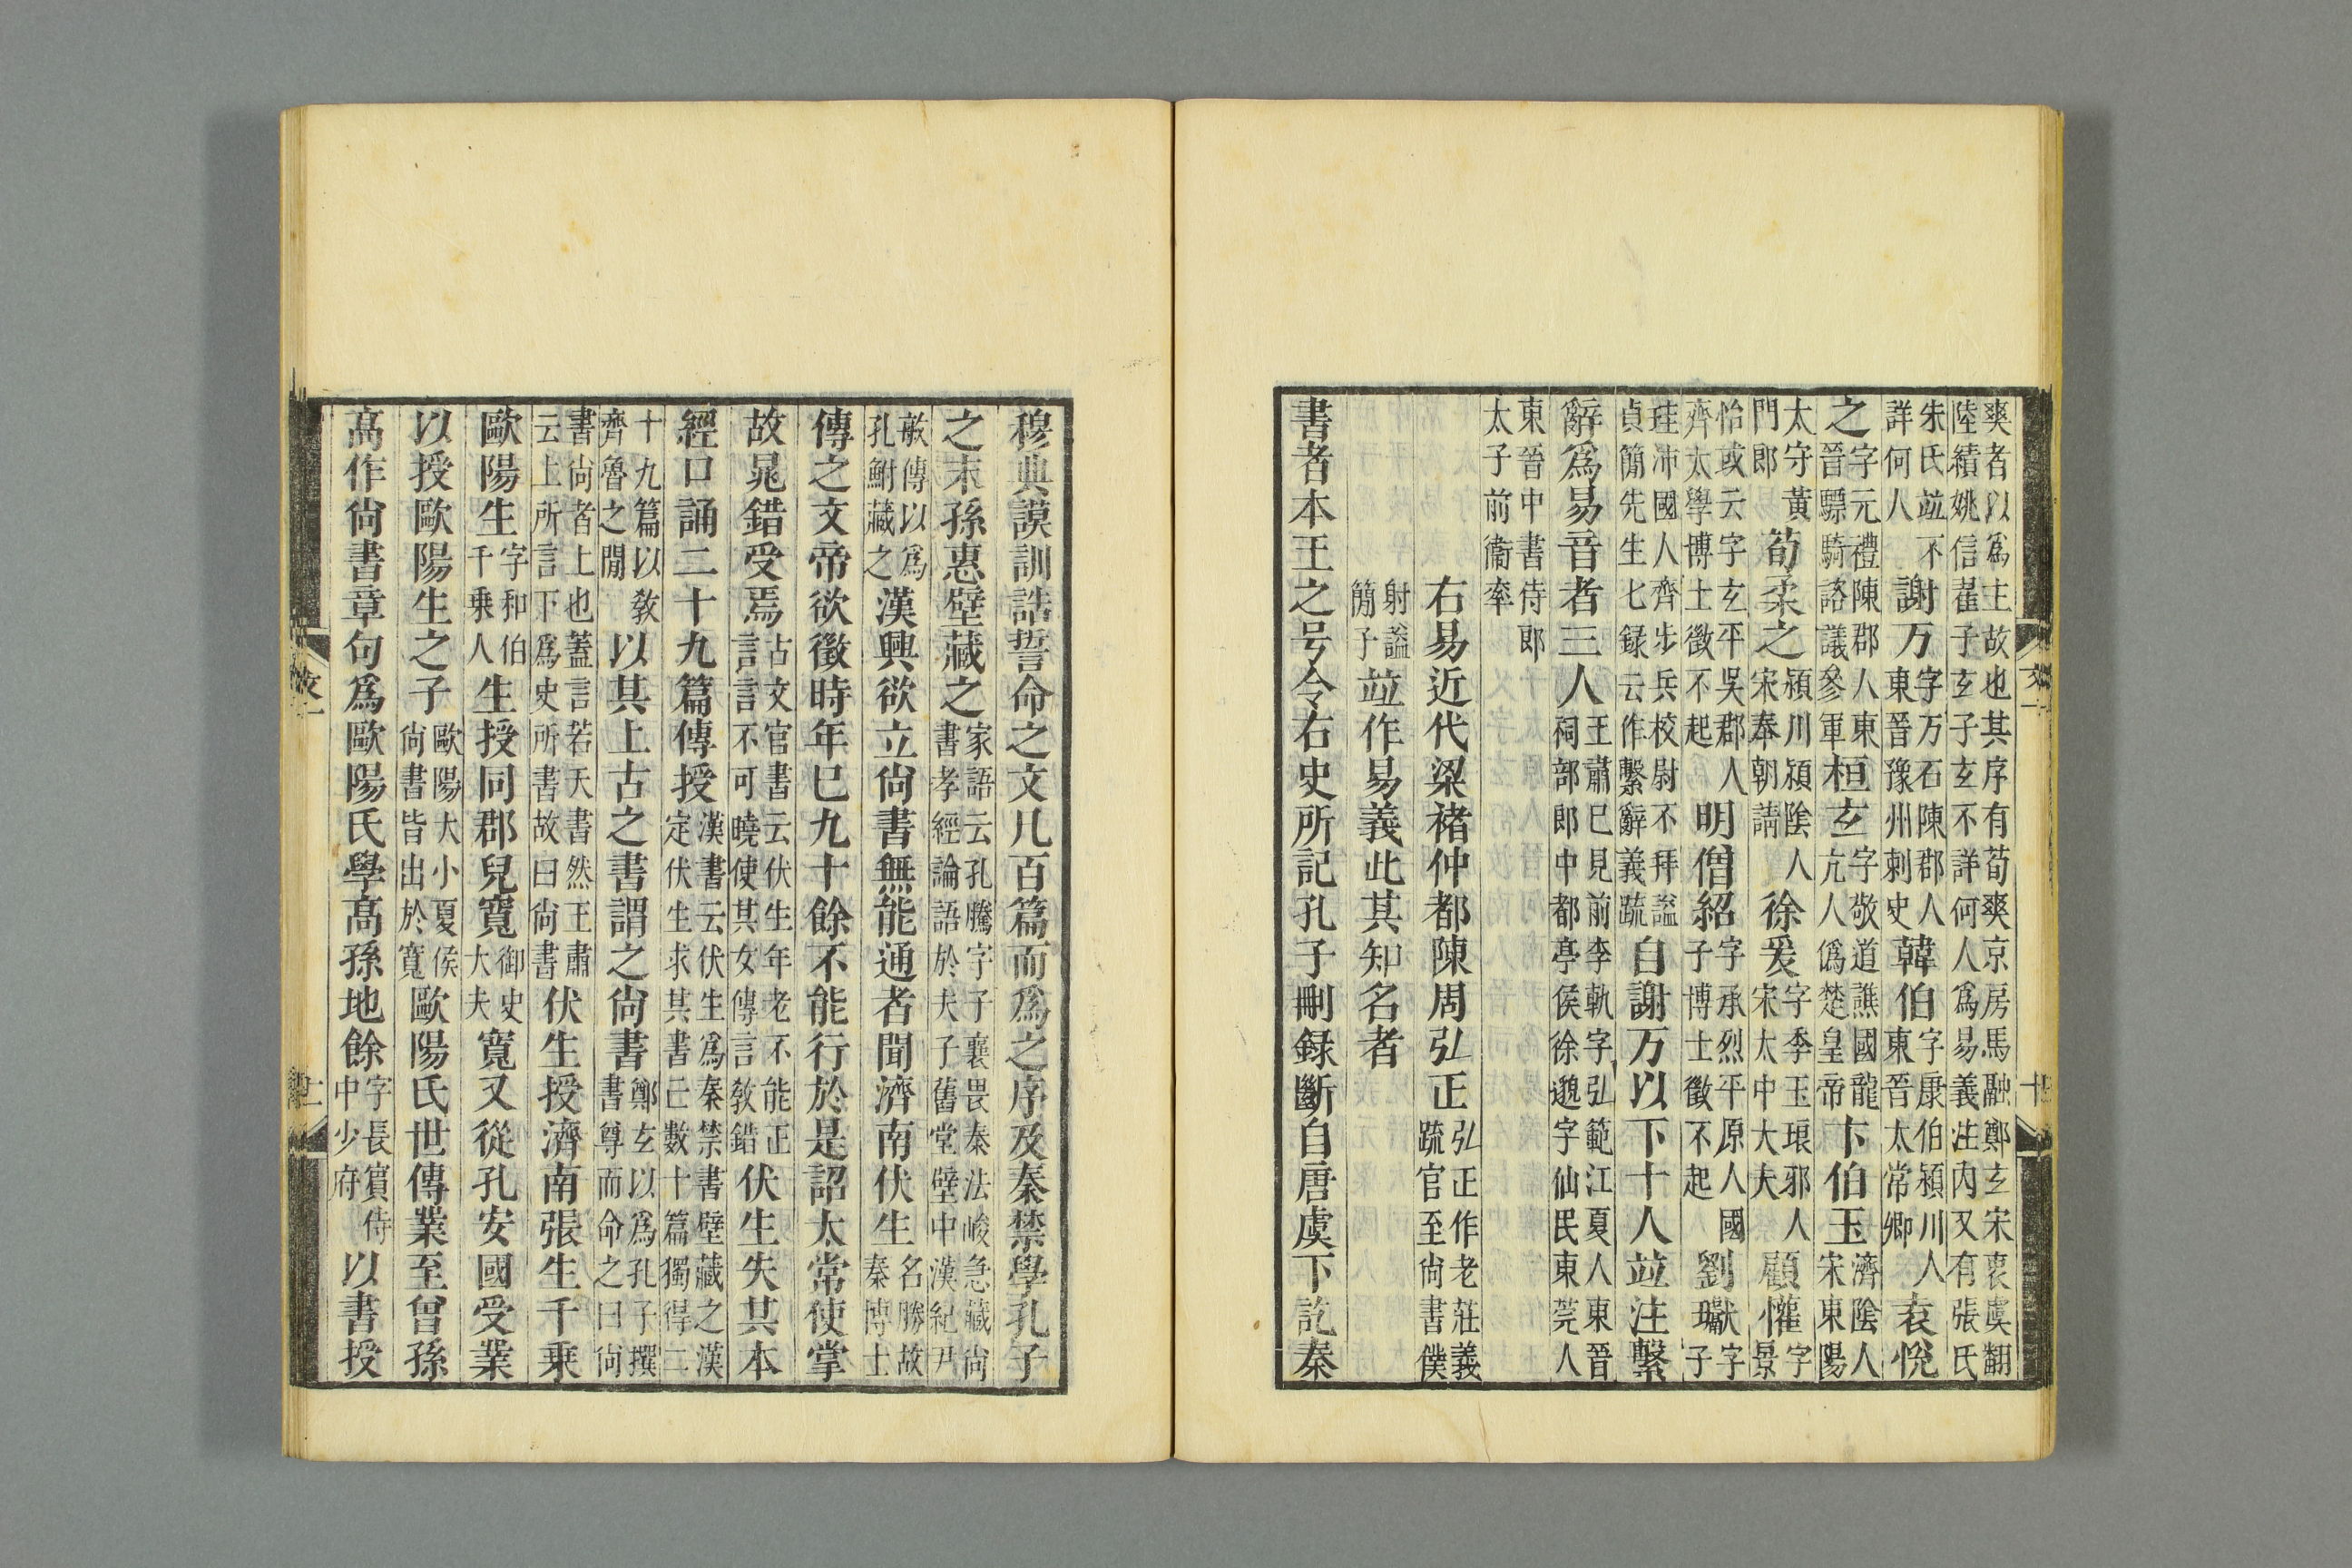 爽者以爲主故也其序有荀爽京房馬融鄭玄宋衷虞翻
陸績姚信翟子玄子玄不詳何人爲易義注内又有張氏
朱氏竝不詳何人謝万字万石陳郡人東晉豫州刺史韓伯字康伯潁川人東晉太常卿袁悅
之字元禮陳郡人東晉驃騎諮議參軍桓玄字敬道譙國龍亢人僞楚皇帝卞伯玉濟陰人宋東陽
太守黃門郎荀柔之潁川潁陰人宋奉朝請徐爰字季玉琅邪人宋太中大夫顧懽字景
怡或云字玄平吳郡人齊太學博士徵不起明僧紹字承烈平原人國子博士徵不起劉瓛字子
珪沛國人齊步兵校尉不拜謚貞簡先生七録云作繫辭義疏自謝万以下十人竝注繫
辭爲易音者三人王肅已見前李軌字弘範江夏人東晉祠部郎中都亭侯徐邈字仙民東莞人
東晉中書侍郎太子前衞率
右易近代梁褚仲都陳周弘正弘正作老莊義疏官至尙書僕
射謚簡子竝作易義此其知名者
書者本王之号令右史所記孔子刪録斷自唐虞下訖秦
穆典謨訓誥誓命之文凡百篇而爲之序及秦禁學孔子
之末孫惠壁藏之家語云孔騰字子襄畏秦法峻急藏尙書孝經論語於夫子舊堂壁中漢紀尹
敏傳以爲孔鮒藏之漢興欲立尙書無能通者聞濟南伏生名勝故秦博士
傳之文帝欲徵時年已九十餘不能行於是詔太常使掌
故晁錯受焉古文官書云伏生年老不能正言言不可曉使其女傳言敎錯伏生失其本
經口誦二十九篇傳授漢書云伏生爲秦禁書壁藏之漢定伏生求其書亡數十篇獨得二
十九篇以敎齊魯之閒以其上古之書謂之尙書鄭玄以爲孔子撰書尊而命之曰尙
書尙者上也蓋言若天書然王肅云上所言下爲史所書故曰尙書伏生授濟南張生千乘
歐陽生字和伯千乘人生授同郡兒寬御史大夫寬又從孔安國受業
以授歐陽生之子歐陽大小夏侯尙書皆出於寬歐陽氏世傳業至曾孫
高作尙書章句爲歐陽氏學高孫地餘字長賓侍中少府以書授